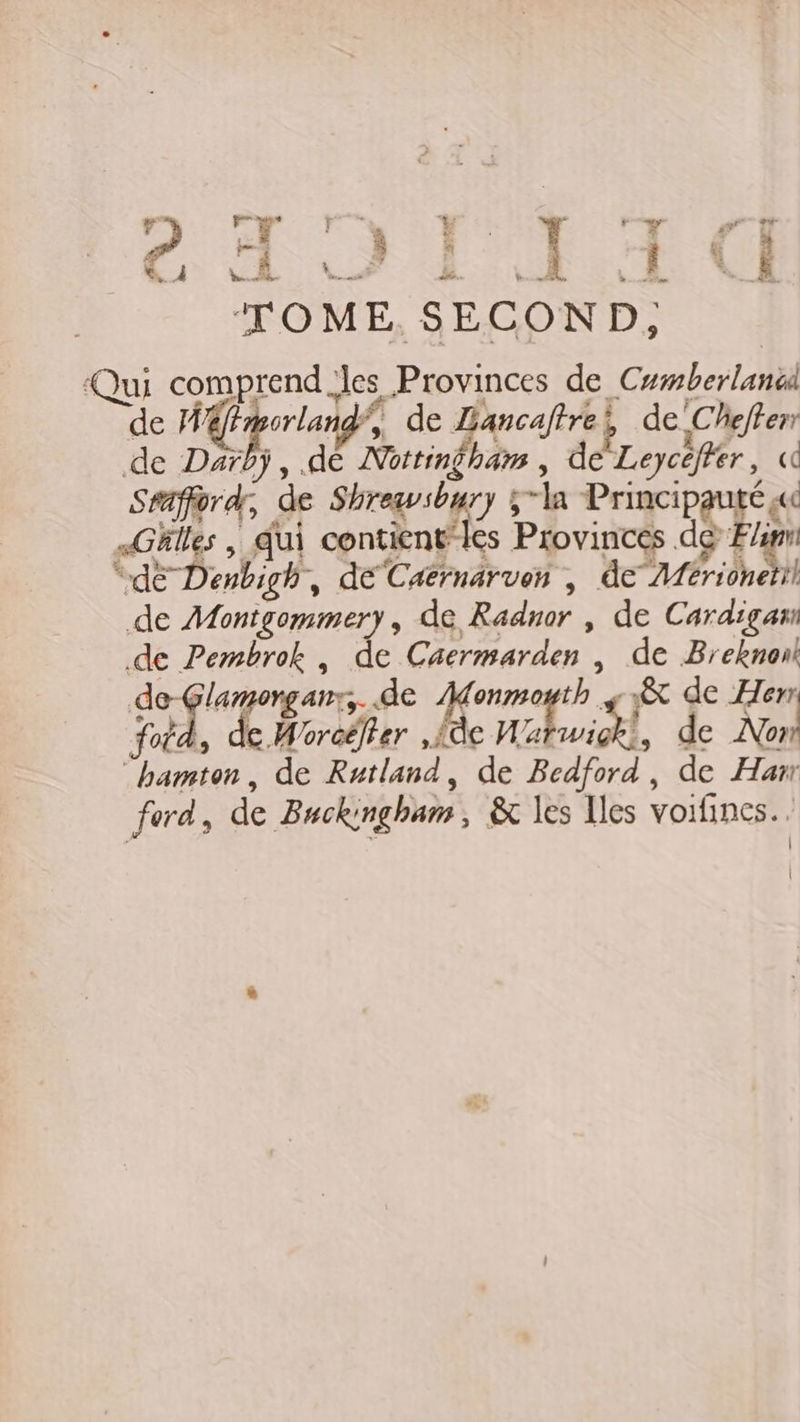 TOME SECOND,
Qui comprend les Provinces de Cumberland
de Weſtmorland, de Lancaſtre, de Cheſter
de Darby, de Nottingham, de Leyceſter,
Stafford, de Shrewsbury; la Principauté
Galles, qui contient les Provinces de Flin
de Denbigh, de Caernarvon, de Merioneth
de Montgommery, de Radnor, de Cardigan
de Pembrok, de Caermarden, de Breknok
de Glamorgan, de Monmouth, & de Here
ford, de Worceſter, de Warwick, de Nort
hamton, de Rutland, de Bedford, de Har
ford, de Buckingham, & les Iles voiſines.